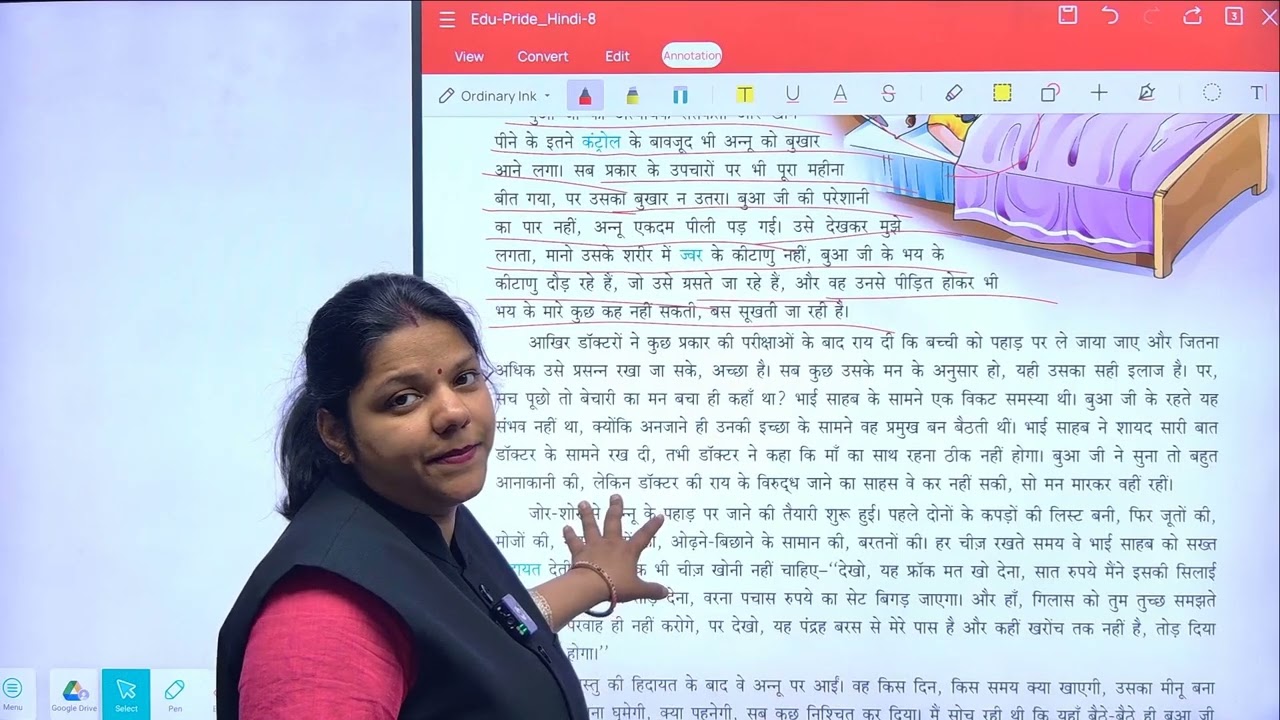 Edu-Pride_Hindi-8
3
View Convert Edit Annotation
Ordinary Ink T U A S T
पीने के इतने कंट्रोल के बावजूद भी अन्नू को बुखार
आने लगा। सब प्रकार के उपचारों पर भी पूरा महीना
बीत गया, पर उसका बुखार न उतरा। बुआ जी की परेशानी
का पार नहीं, अन्नू एकदम पीली पड़ गई। उसे देखकर मुझे
लगता, मानो उसके शरीर में ज्वर के कीटाणु नहीं, बुआ जी के भय के
कीटाणु दौड़ रहे हैं, जो उसे ग्रसते जा रहे हैं, और वह उनसे पीड़ित होकर भी
भय के मारे कुछ कह नहीं सकती, बस सूखती जा रही है।
आखिर डॉक्टरों ने कुछ प्रकार की परीक्षाओं के बाद राय दी कि बच्ची को पहाड़ पर ले जाया जाए और जितना
अधिक उसे प्रसन्न रखा जा सके, अच्छा है। सब कुछ उसके मन के अनुसार हो, यही उसका सही इलाज है। पर,
सच पूछो तो बेचारी का मन बचा ही कहाँ था? भाई साहब के सामने एक विकट समस्या थी। बुआ जी के रहते यह
संभव नहीं था, क्योंकि अनजाने ही उनकी इच्छा के सामने वह प्रमुख बन बैठती थीं। भाई साहब ने शायद सारी बात
डॉक्टर के सामने रख दी, तभी डॉक्टर ने कहा कि माँ का साथ रहना ठीक नहीं होगा। बुआ जी ने सुना तो बहुत
आनाकानी की, लेकिन डॉक्टर की राय के विरुद्ध जाने का साहस वे कर नहीं सकी, सो मन मारकर वहीं रहीं।
जोर-शोर से अन्नू के पहाड़ पर जाने की तैयारी शुरू हुई। पहले दोनों के कपड़ों की लिस्ट बनी, फिर जूतों की,
मोजों की, ओढ़ने-बिछाने के सामान की, बरतनों की। हर चीज़ रखते समय वे भाई साहब को सख्त
देती भी चीज़ खोनी नहीं चाहिए–“देखो, यह फ्रॉक मत खो देना, सात रुपये मैंने इसकी सिलाई
देना, वरना पचास रुपये का सेट बिगड़ जाएगा। और हाँ, गिलास को तुम तुच्छ समझते
परवाह ही नहीं करोगे, पर देखो, यह पंद्रह बरस से मेरे पास है और कहीं खरोंच तक नहीं है, तोड़ दिया
होगा।”
की हिदायत के बाद वे अन्नू पर आईं। वह किस दिन, किस समय क्या खाएगी, उसका मीनू बना
घूमेगी, क्या पहनेगी, सब कुछ निश्चित कर दिया। मैं सोच रही थी कि यहाँ बैठे-बैठे ही बुआ जी
Menu Google Drive Select Pen